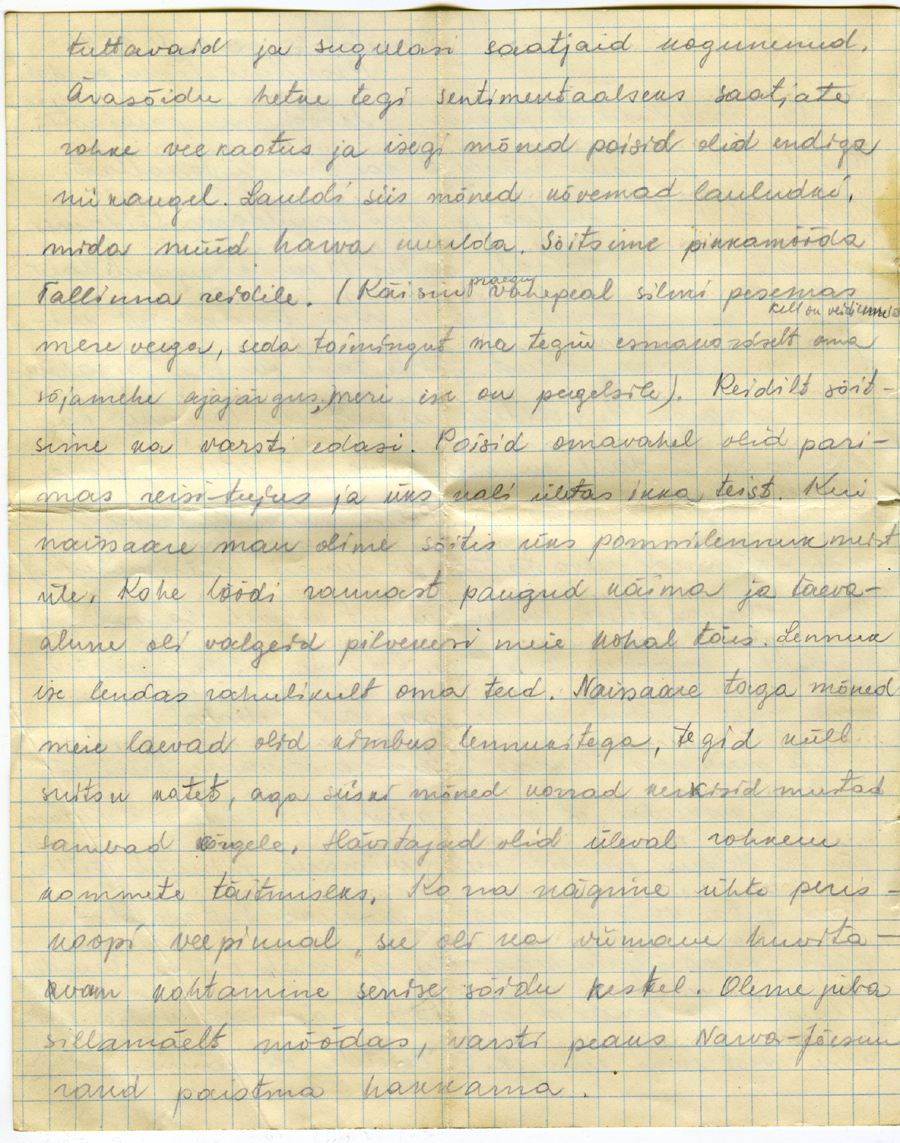 tuttavaid ja sugulasi saatjaid kogunenud.
Ärasõidu hetke tegi sentimentaalseks saatjate
rohke veekaotus ja isegi mõned poisid olid endiga
niikaugel. Lauldi siis mõned kõvemad lauludki,
mida nüüd harva kuulda. Sõitsime pikkamööda
Tallinna reidile. (Käisin praegu vahepeal silmi pesemas
kell on veidi
mere veega, seda toimingut ma tegin esmakordselt oma
sõjamehe ajajärgus, meri ise on peegelsile). Reidilt sõit-
sime ka varsti edasi. Poisid omavahel olid pari-
mas reisi-tujus ja üks nali ületas ikka teist. Kui
naissaare man olime sõitis üks pommilennuk meist
üle. Kohe löödi rannast paugud käima ja taeva-
alune oli valgeid pilvekesi meie kohal täis. Lennuk
ise lendas rahulikult oma teid. Naissaare taga mõned
meie laevad olid kimbus lennukitega, tegid küll
suitsu katet, aga siiski mõned korrad kerkisid mustad
sambad kõrgele. Hävitajad olid üleval rohkem
kommete täitmiseks. Ka ma nägime ühte peris-
koopi veepinnal, see oli ka viimane huvita-
vam kohtamine senise sõidu kestel. Oleme juba
sillamäelt möödas, varsti peaks Narva-Jõesuu
rand paistma hakkama.